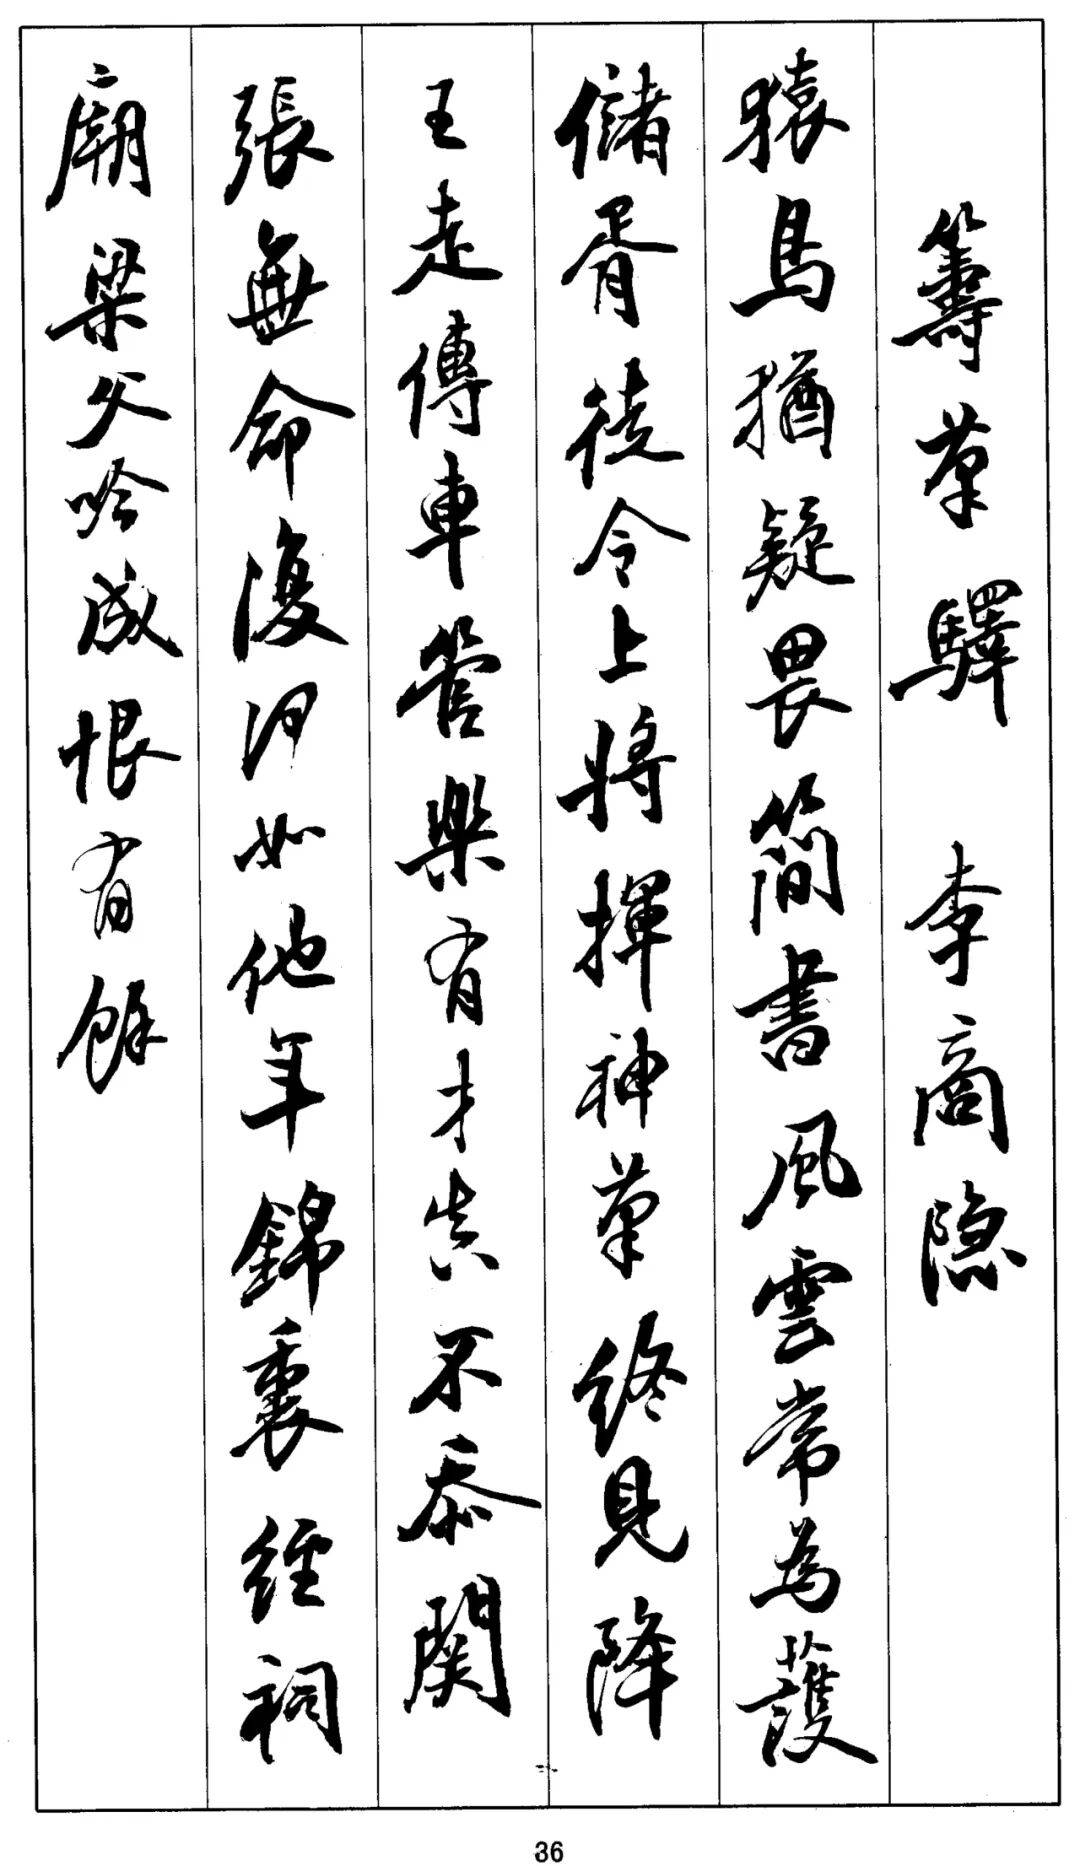 籌筆驛 李商隱
猿鳥猶疑畏簡書風雲常為護
儲胥徒令上將揮神筆終見降
王走傳車管樂有才真不忝關
張無命復何如他年錦裏經祠
廟梁父吟成恨有餘
36